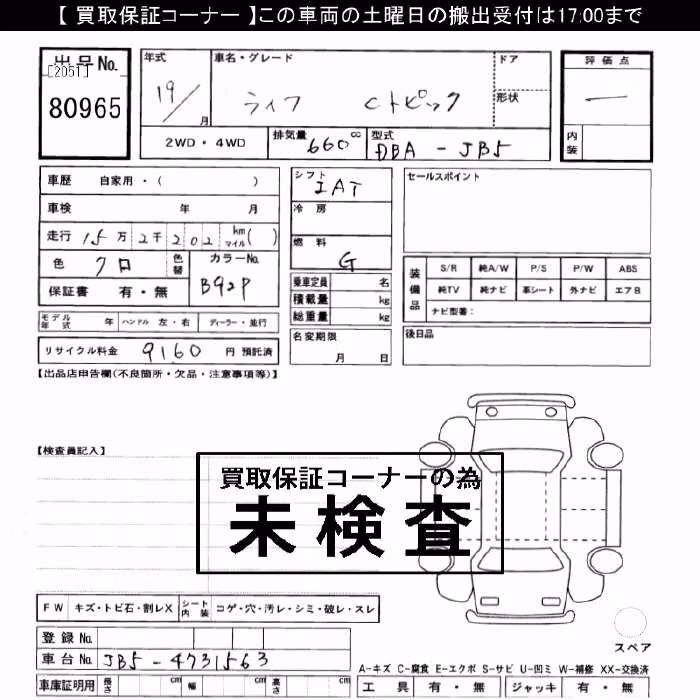 【 買取保証コーナー 】この車両の土曜日の搬出受付は17:00まで
出品No.
[2051]
80965
年式
19/
月
車名・グレード
ライフ Cトピック
ドア
形状
評価点
—
内装
2WD・4WD
排気量 660 cc
型式 DBA - JB5
車歴 自家用・( )
車検 年 月
走行 15万2千202 km マイル( )
色 クロ
色替
カラーNo. B92P
保証書 有・無
モデル年式 年 ハンドル 左・右 ディーラー・並行
リサイクル料金 9160 円 預託済
シフト IAT
冷房
燃料 G
乗車定員 名
積載量 kg
総重量 kg
名変期限
月 日
セールスポイント
装備品
S/R 純A/W P/S P/W ABS
純TV 純ナビ 革シート 外ナビ エアB
ナビ型番:
後日品
【出品店申告欄(不良箇所・欠品・注意事項等)】
【検査員記入】
買取保証コーナーの為
未検査
FW キズ・トビ石・割レX シート内装 コゲ・穴・汚レ・シミ・破レ・スレ
登録No.
車台No. JB5-4731563
車庫証明用 長さ cm 幅 cm 高さ cm
スペア
A-キズ C-腐食 E-エクボ S-サビ U-凹ミ W-補修 XX-交換済
工具 有・無 ジャッキ 有・無